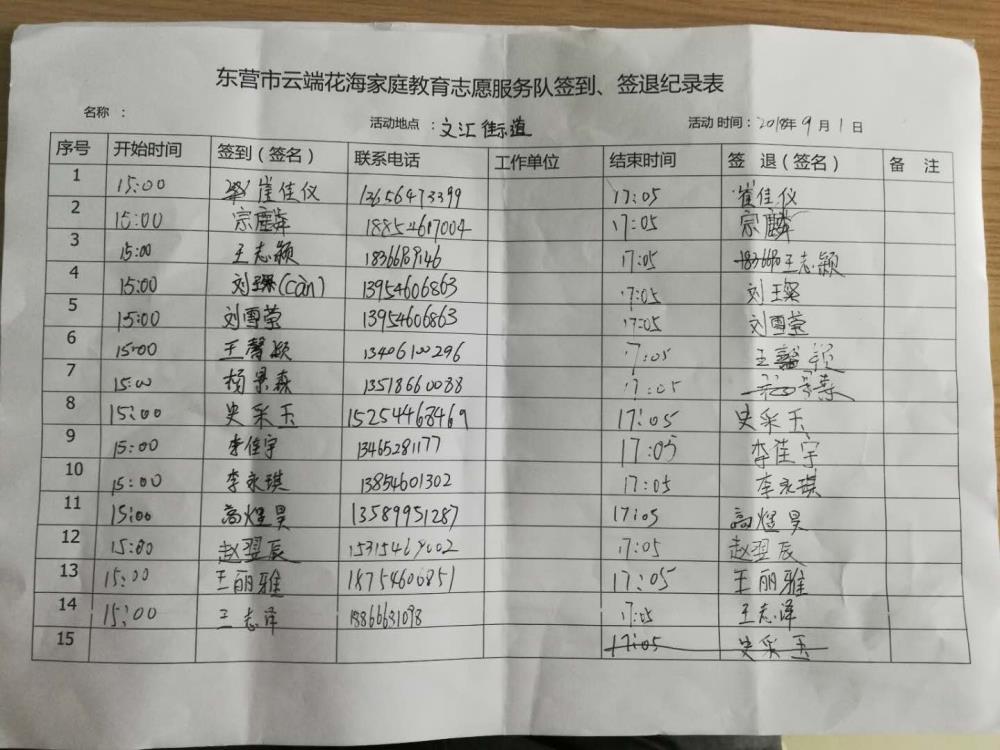 东营市云端花海家庭教育志愿服务队签到、签退纪录表
名称 ： 活动地点 ：文汇街道 活动 时间：2018年 9 月 1 日
序号 开始时间 签到（签名） 联系电话 工作单位 结束时间 签 退（签名） 备 注
1 15:00 崔佳仪 13656473399 17:05 崔佳仪
2 15:00 宗麟 18854617004 17:05 宗麟
3 15:00 王志颖 17:05 王志颖
4 15:00 刘璨(càn) 13954606863 17:05 刘璨
5 15:00 刘雪莹 13954606863 17:05 刘雪莹
6 15:00 王馨颖 13406100296 17:05 王馨颖
7 15:00 杨景森 13518660088 17:05
8 15:00 史采玉 15254468469 17:05 史采玉
9 15:00 李佳宇 13465281177 17:05 李佳宇
10 15:00 李永琪 13854601302 17:05 李永琪
11 15:00 高煜昊 13589951287 17:05 高煜昊
12 15:00 赵翌辰 17:05 赵翌辰
13 15:00 王丽雅 18754600851 17:05 王丽雅
14 15:00 王志泽 17:05 王志泽
15 17:05 史采玉